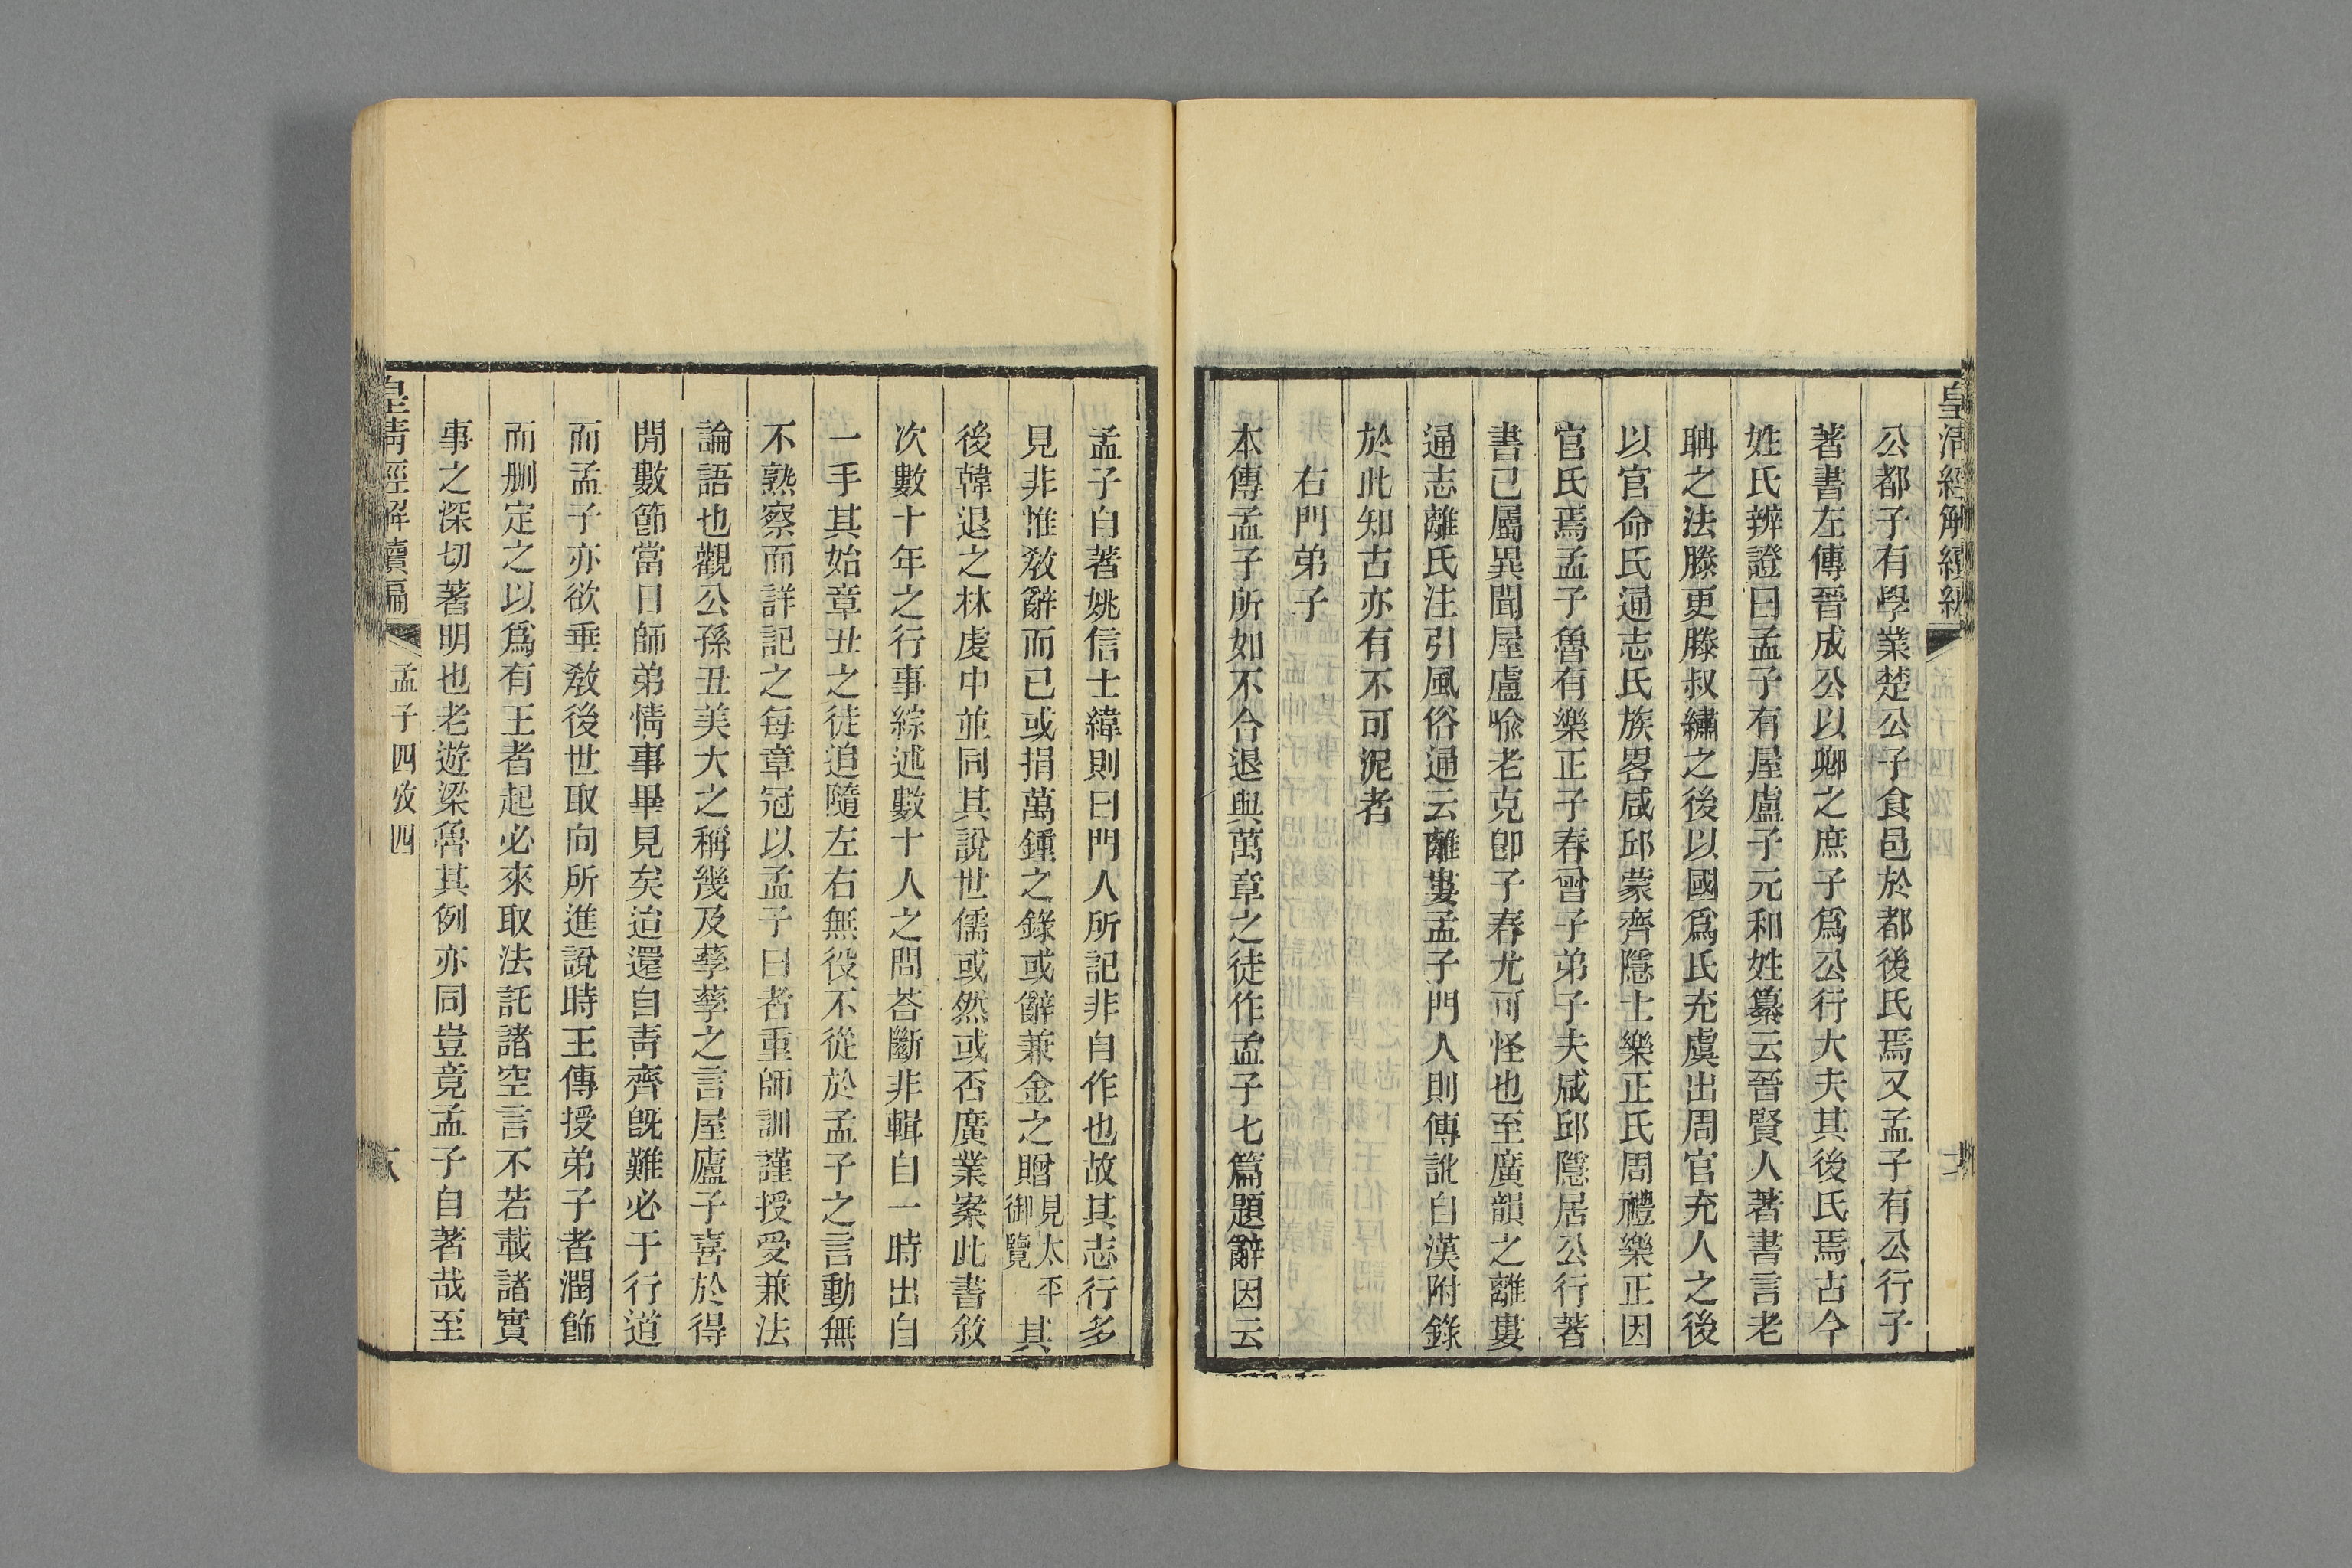 皇清經解續編
公都子有學業楚公子食邑於都後氏焉又孟子有公行子
著書左傳晉成公以卿之庶子爲公行大夫其後氏焉古今
姓氏辨證曰孟子有屋廬子元和姓纂云晉賢人著書言老
聃之法滕更滕叔繡之後以國爲氏充虞出周官充人之後
以官命氏通志氏族畧咸邱蒙齊隱士樂正氏周禮樂正因
官氏焉孟子魯有樂正子春曾子弟子夫咸邱隱居公行著
書已屬異聞屋廬喩老克卽子春尤可怪也至廣韻之離婁
通志離氏注引風俗通云離婁孟子門人則傳訛自漢附錄
於此知古亦有不可泥者
右門弟子
本傳孟子所如不合退與萬章之徒作孟子七篇題辭因云
孟子自著姚信士緯則曰門人所記非自作也故其志行多
見非惟敎辭而已或捐萬鍾之錄或辭兼金之贈見太平御覽其
後韓退之林虙中並同其說世儒或然或否廣業案此書敘
次數十年之行事綜述數十人之問荅斷非輯自一時出自
一手其始章丑之徒追隨左右無役不從於孟子之言動無
不熟察而詳記之每章冠以孟子曰者重師訓謹授受兼法
論語也觀公孫丑美大之稱幾及孳孳之言屋廬子喜於得
閒數節當日師弟情事畢見矣迨還自靑齊旣難必于行道
而孟子亦欲垂敎後世取向所進說時王傳授弟子者潤飾
而刪定之以爲有王者起必來取法託諸空言不若載諸實
事之深切著明也老遊梁魯其例亦同豈竟孟子自著哉至
皇淸經解續編
孟子四攷四